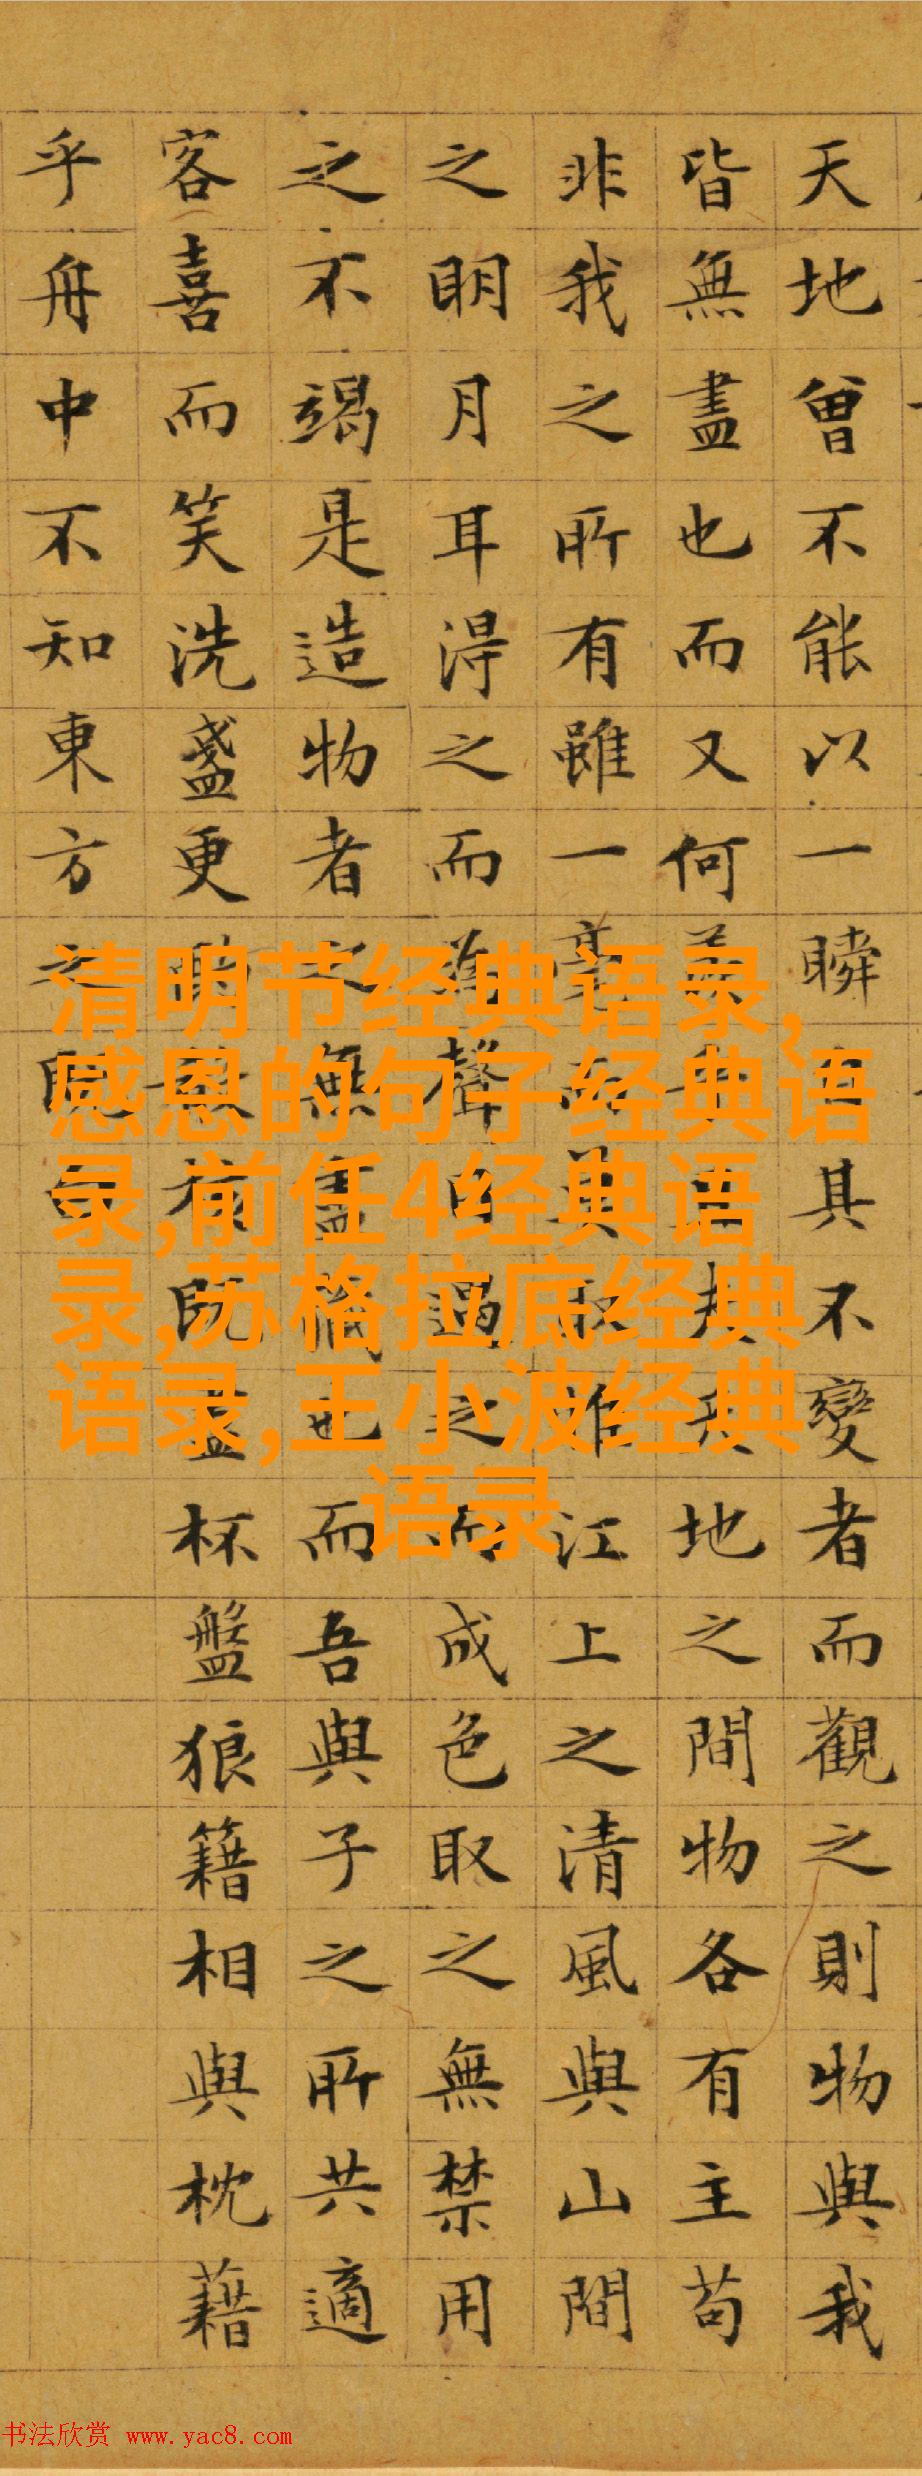 天地曾不能以一瞬其不變者而觀之則物與我
皆無盡也而又何夫地之間物各有主苟
非我之所有雖一毫而莫取惟江上之清風與山間
之明月耳得之而為聲目遇之而成色取之無禁用
之不竭是造物者之無盡藏也而吾與子之所共適
客喜而笑洗盞更核既盡杯盤狼籍相與枕藉
乎舟中不知東方之
清明节经典语录,
感恩的句子经典语
录,前任4经典语
录,苏格拉底经典
语录,王小波经典
语录
书法欣赏 www.yac8.com